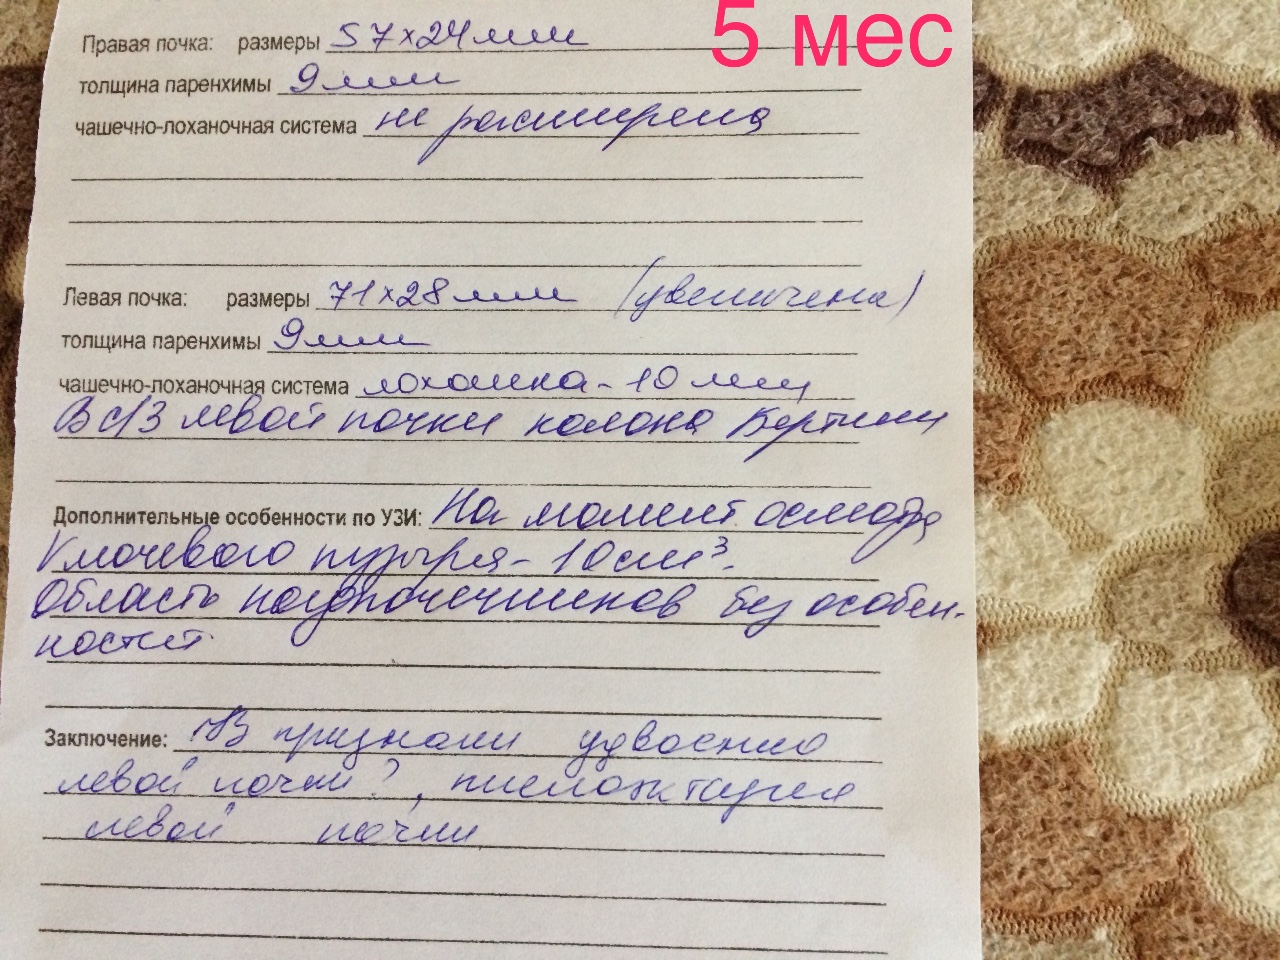 5 мес
Правая почка: размеры 57х24мм
толщина паренхимы 9мм
чашечно-лоханочная система не расширена
Левая почка: размеры 71х28мм (увеличена)
толщина паренхимы 9мм
чашечно-лоханочная система лоханка - 10 мм,
В с/3 левой почки колона Бертини
Дополнительные особенности по УЗИ: На момент осмотра
V мочевого пузыря - 10см³.
Область надпочечников без особен-
ностей.
Заключение: УЗ признаки удвоения
левой почки?, пиелоэктазия
левой почки